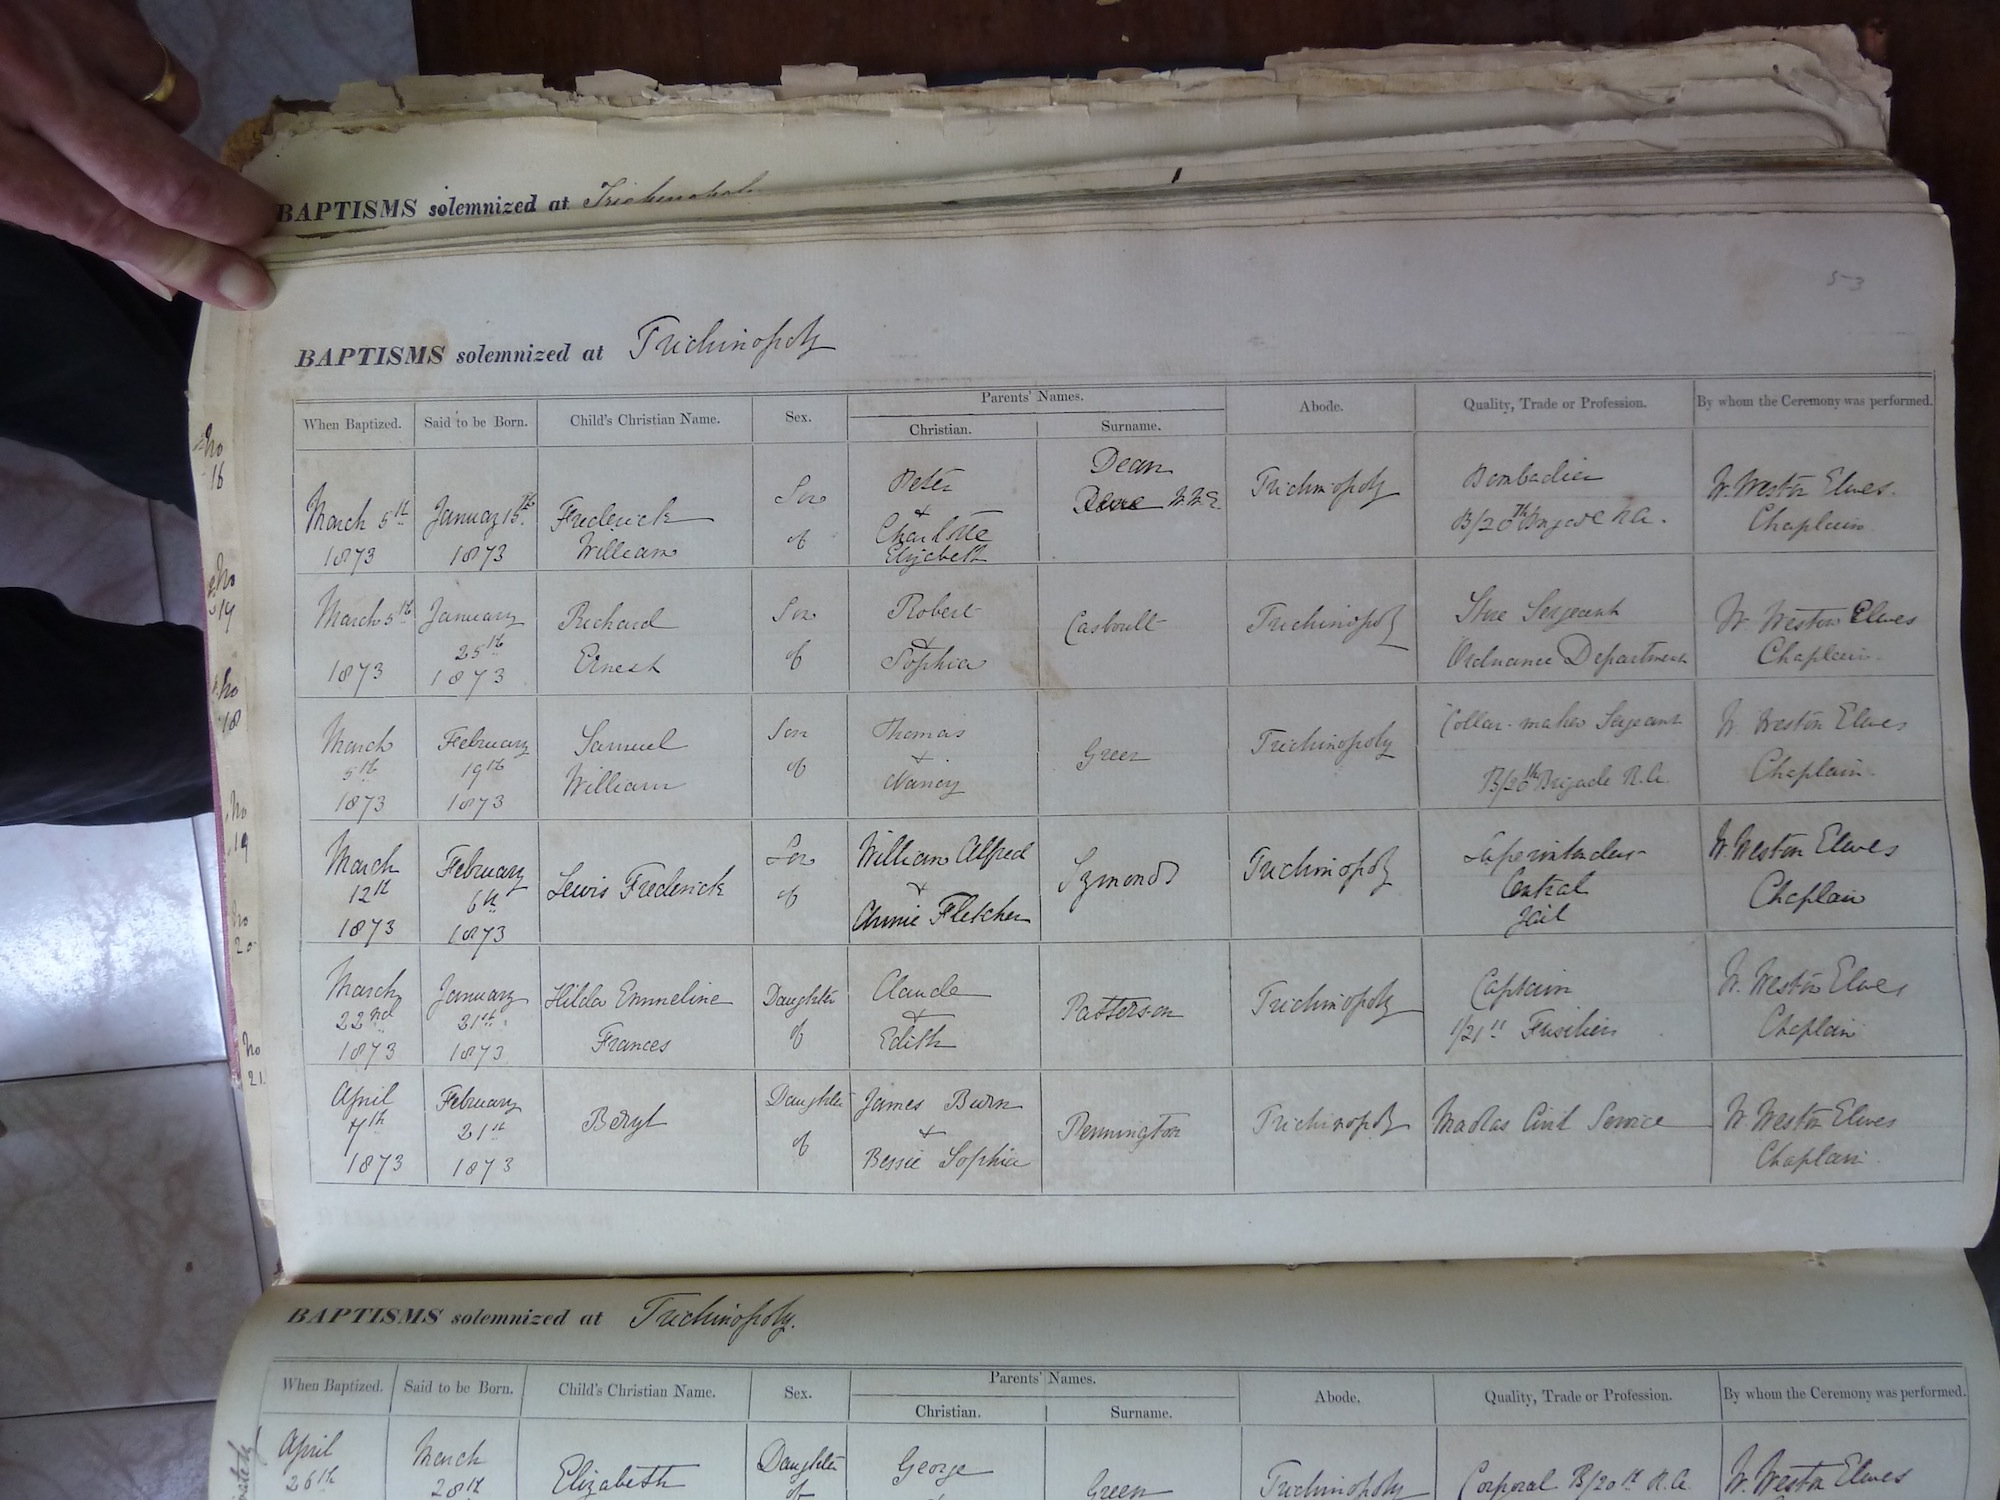 BAPTISMS solemnized at Trichinopoly
53
BAPTISMS solemnized at Trichinopoly
When Baptized. Said to be Born. Child's Christian Name. Sex. Parents' Names. Abode. Quality, Trade or Profession. By whom the Ceremony was performed.
Christian. Surname.
No 16
March 5th 1873
January 15th 1873
Frederick William
Son of
Peter + Charlotte Elizabeth
Dean
W.W.E.
Trichinopoly
Bombadier
B/20th Brigade R.A.
W. Weston Elwes.
Chaplain
No 17
March 5th 1873
January 25th 1873
Richard Ernest
Son of
Robert + Sophia
Casboult
Trichinopoly
Store Sergeant
Ordnance Department
W. Weston Elwes
Chaplain.
No 18
March 5th 1873
February 19th 1873
Samuel William
Son of
Thomas + Nancy
Green
Trichinopoly
Collar-maker Sergeant
B/20th Brigade R.A.
W. Weston Elwes
Chaplain.
No 19
March 12th 1873
February 6th 1873
Lewis Frederick
Son of
William Alfred + Annie Fletcher
Symonds
Trichinopoly
Superintendent
Central
Jail
W. Weston Elwes
Chaplain
No 20
March 22nd 1873
January 31st 1873
Hilda Emmeline Frances
Daughter of
Claude + Edith
Patterson
Trichinopoly
Captain
1/21st Fusiliers
W. Weston Elwes
Chaplain
No 21.
April 7th 1873
February 21st 1873
Beryl
Daughter of
James Burn + Bessie Sophia
Pennington
Trichinopoly
Madras Civil Service
W. Weston Elwes
Chaplain.
BAPTISMS solemnized at Trichinopoly.
When Baptized. Said to be Born. Child's Christian Name. Sex. Parents' Names. Abode. Quality, Trade or Profession. By whom the Ceremony was performed.
Christian. Surname.
April 26th
March 28th
Elizabeth
Daughter of
George
Green
Trichinopoly
Corporal B/20th R.A.
W. Weston Elwes